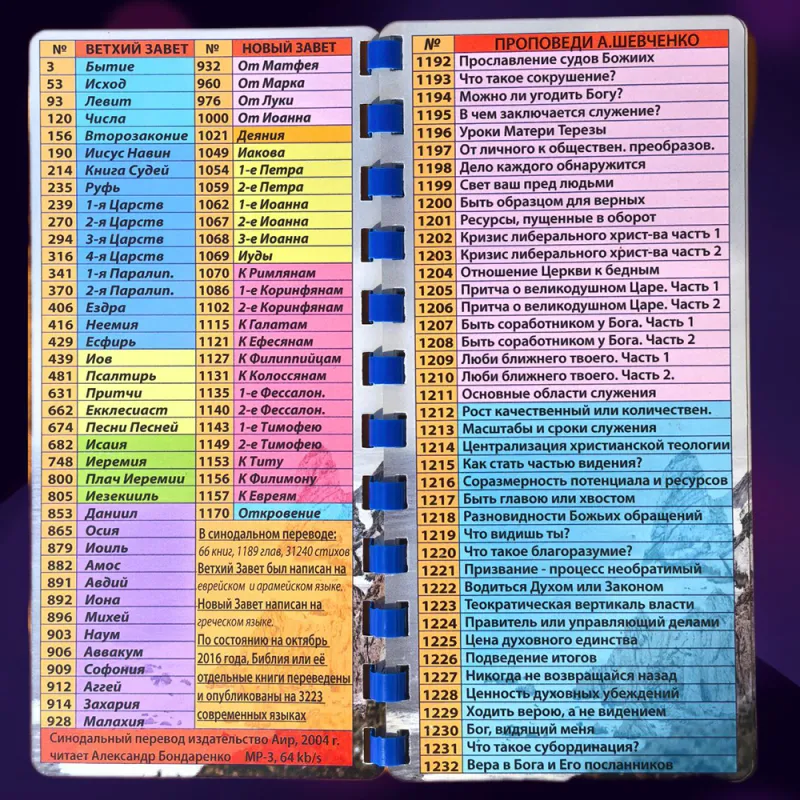 № ВЕТХИЙ ЗАВЕТ
3 Бытие
53 Исход
93 Левит
120 Числа
156 Второзаконие
190 Иисус Навин
214 Книга Судей
235 Руфь
239 1-я Царств
270 2-я Царств
294 3-я Царств
316 4-я Царств
341 1-я Паралип.
370 2-я Паралип.
406 Ездра
416 Неемия
429 Есфирь
439 Иов
481 Псалтирь
631 Притчи
662 Екклесиаст
674 Песни Песней
682 Исаия
748 Иеремия
800 Плач Иеремии
805 Иезекииль
853 Даниил
865 Осия
879 Иоиль
882 Амос
891 Авдий
892 Иона
896 Михей
903 Наум
906 Аввакум
909 Софония
912 Аггей
914 Захария
928 Малахия
№ НОВЫЙ ЗАВЕТ
932 От Матфея
960 От Марка
976 От Луки
1000 От Иоанна
1021 Деяния
1049 Иакова
1054 1-е Петра
1059 2-е Петра
1062 1-е Иоанна
1067 2-е Иоанна
1068 3-е Иоанна
1069 Иуды
1070 К Римлянам
1086 1-е Коринфянам
1102 2-е Коринфянам
1115 К Галатам
1121 К Ефесянам
1127 К Филиппийцам
1131 К Колоссянам
1135 1-е Фессалон.
1140 2-е Фессалон.
1143 1-е Тимофею
1149 2-е Тимофею
1153 К Титу
1156 К Филимону
1157 К Евреям
1170 Откровение
В синодальном переводе:
66 книг, 1189 глав, 31240 стихов
Ветхий Завет был написан на
еврейском и арамейском языке.
Новый Завет написан на
греческом языке.
По состоянию на октябрь
2016 года, Библия или её
отдельные книги переведены
и опубликованы на 3223
современных языках
Синодальный перевод издательство Аир, 2004 г.
читает Александр Бондаренко MP-3, 64 kb/s
№ ПРОПОВЕДИ А.ШЕВЧЕНКО
1192 Прославление судов Божиих
1193 Что такое сокрушение?
1194 Можно ли угодить Богу?
1195 В чем заключается служение?
1196 Уроки Матери Терезы
1197 От личного к обществен. преобразов.
1198 Дело каждого обнаружится
1199 Свет ваш пред людьми
1200 Быть образцом для верных
1201 Ресурсы, пущенные в оборот
1202 Кризис либерального христ-ва частъ 1
1203 Кризис либерального христ-ва частъ 2
1204 Отношение Церкви к бедным
1205 Притча о великодушном Царе. Часть 1
1206 Притча о великодушном Царе. Часть 2
1207 Быть соработником у Бога. Часть 1
1208 Быть соработником у Бога. Часть 2
1209 Люби ближнего твоего. Часть 1
1210 Люби ближнего твоего. Часть 2.
1211 Основные области служения
1212 Рост качественный или количествен.
1213 Масштабы и сроки служения
1214 Централизация христианской теологии
1215 Как стать частью видения?
1216 Соразмерность потенциала и ресурсов
1217 Быть главою или хвостом
1218 Разновидности Божьих обращений
1219 Что видишь ты?
1220 Что такое благоразумие?
1221 Призвание - процесс необратимый
1222 Водиться Духом или Законом
1223 Теократическая вертикаль власти
1224 Правитель или управляющий делами
1225 Цена духовного единства
1226 Подведение итогов
1227 Никогда не возвращайся назад
1228 Ценность духовных убеждений
1229 Ходить верою, а не видением
1230 Бог, видящий меня
1231 Что такое субординация?
1232 Вера в Бога и Его посланников